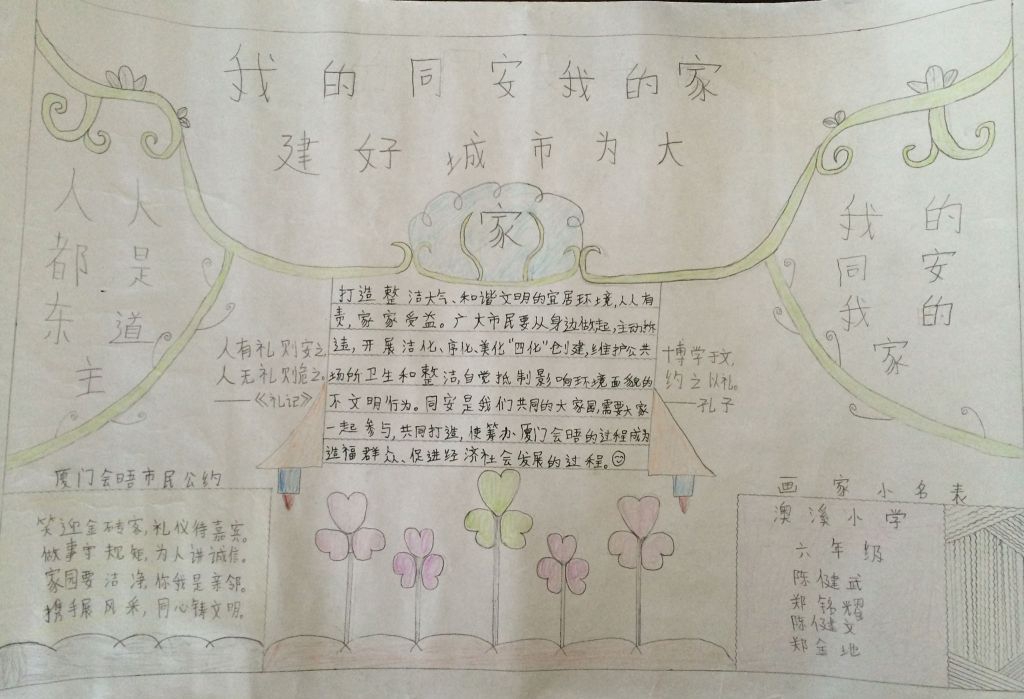 我的同安我的家
建好城市为大
家
人人
都是
东道
主
我的
同安
我的
家
打造整洁大气、和谐文明的宜居环境,人人有
责,家家受益。广大市民要从身边做起,主动拆
违,开展洁化、序化、美化“四化”创建,维护公共
场所卫生和整洁,自觉抵制影响环境面貌的
不文明行为。同安是我们共同的大家园,需要大家
一起参与,共同打造,使筹办厦门会晤的过程成为
造福群众、促进经济社会发展的过程。
人有礼则安之
人无礼则危之。
——《礼记》
博学于文,
约之以礼。
——孔子
厦门会晤市民公约
笑迎金砖客,礼仪待嘉宾。
做事守规矩,为人讲诚信。
家园要洁净,你我是亲邻。
携手展风采,同心铸文明。
画家小名表
澳溪小学
六年级
陈健武
郑锦耀
陈健文
郑金地